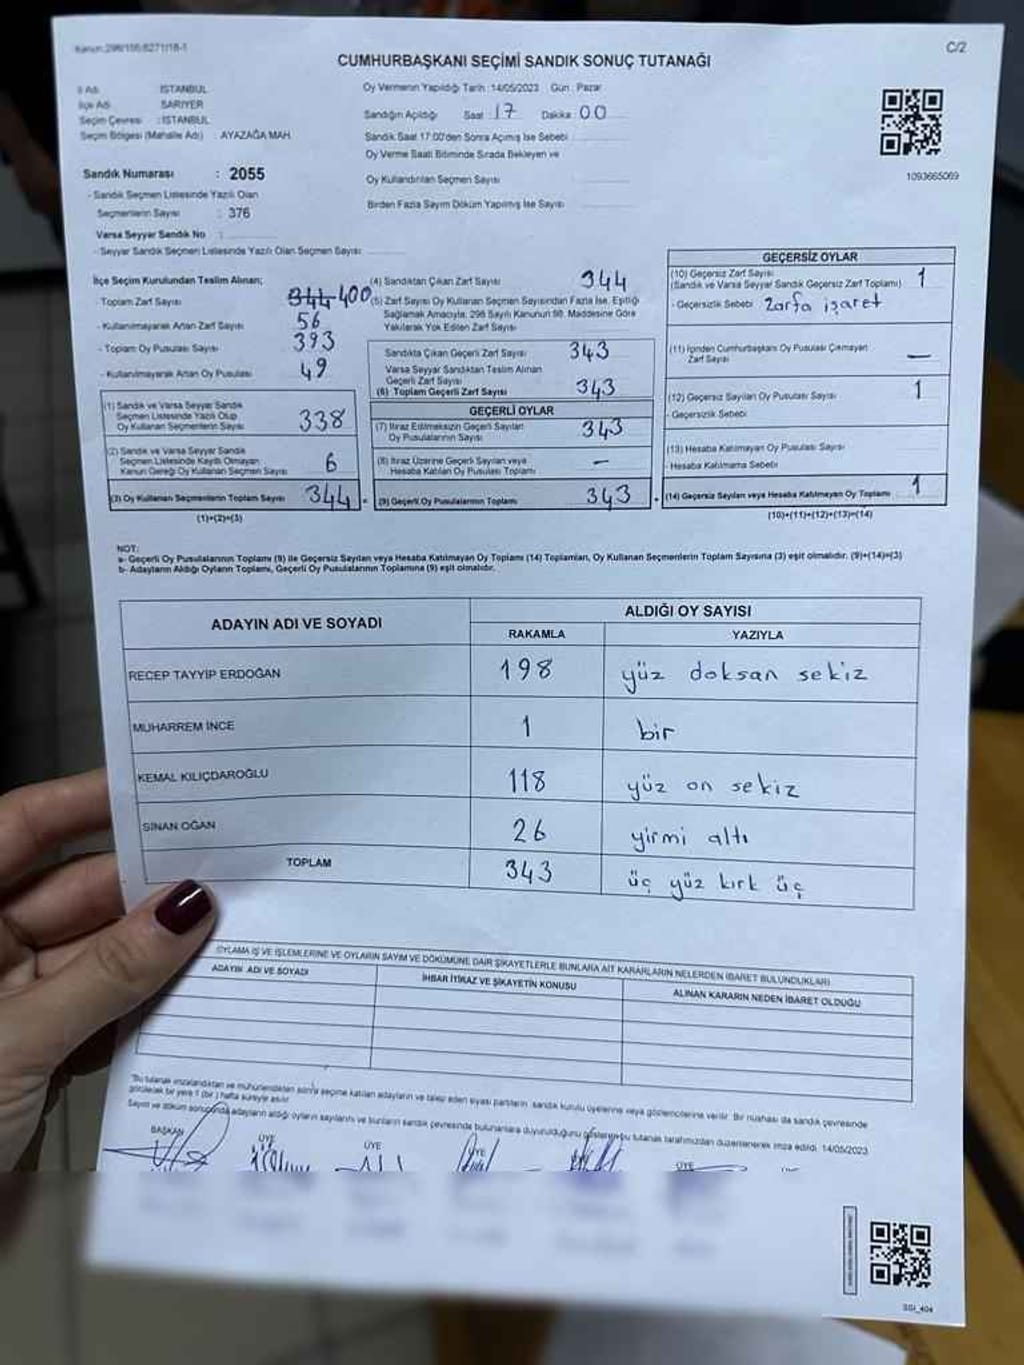 Kanun:298/106;6271/18-1
C/2
CUMHURBAŞKANI SEÇİMİ SANDIK SONUÇ TUTANAĞI
İl Adı : İSTANBUL
İlçe Adı : SARIYER
Seçim Çevresi : İSTANBUL
Seçim Bölgesi (Mahalle Adı) : AYAZAĞA MAH.
Sandık Numarası : 2055
- Sandık Seçmen Listesinde Yazılı Olan
Seçmenlerin Sayısı : 376
Varsa Seyyar Sandık No :
- Seyyar Sandık Seçmen Listesinde Yazılı Olan Seçmen Sayısı:
Oy Vermenin Yapıldığı Tarih : 14/05/2023 Gün : Pazar
Sandığın Açıldığı Saat : 17 Dakika : 00
Sandık Saat 17:00'den Sonra Açılmış İse Sebebi
Oy Verme Saati Bitiminde Sırada Bekleyen ve
Oy Kullandırılan Seçmen Sayısı
Birden Fazla Sayım Döküm Yapılmış İse Sayısı
1093665069
İlçe Seçim Kurulundan Teslim Alınan;
- Toplam Zarf Sayısı 344 400
- Kullanılmayarak Artan Zarf Sayısı 56
- Toplam Oy Pusulası Sayısı 393
- Kullanılmayarak Artan Oy Pusulası 49
(1) Sandık ve Varsa Seyyar Sandık
Seçmen Listesinde Yazılı Olup
Oy Kullanan Seçmenlerin Sayısı 338
(2) Sandık ve Varsa Seyyar Sandık
Seçmen Listesinde Kayıtlı Olmayan
Kanun Gereği Oy Kullanan Seçmen Sayısı 6
(3) Oy Kullanan Seçmenlerin Toplam Sayısı 344 =
(1)+(2)=(3)
(4) Sandıktan Çıkan Zarf Sayısı 344
(5) Zarf Sayısı Oy Kullanan Seçmen Sayısından Fazla İse, Eşitliği
Sağlamak Amacıyla, 298 Sayılı Kanunun 98. Maddesine Göre
Yakılarak Yok Edilen Zarf Sayısı
Sandıkta Çıkan Geçerli Zarf Sayısı 343
Varsa Seyyar Sandıktan Teslim Alınan
Geçerli Zarf Sayısı
(6) Toplam Geçerli Zarf Sayısı 343
GEÇERLİ OYLAR
(7) İtiraz Edilmeksizin Geçerli Sayılan
Oy Pusulalarının Sayısı 343
(8) İtiraz Üzerine Geçerli Sayılan veya
Hesaba Katılan Oy Pusulası Toplamı –
(9) Geçerli Oy Pusulalarının Toplamı 343
GEÇERSİZ OYLAR
(10) Geçersiz Zarf Sayısı
(Sandık ve Varsa Seyyar Sandık Geçersiz Zarf Toplamı) 1
- Geçersizlik Sebebi : Zarfa işaret
(11) İçinden Cumhurbaşkanı Oy Pusulası Çıkmayan
Zarf Sayısı –
(12) Geçersiz Sayılan Oy Pusulası Sayısı 1
- Geçersizlik Sebebi
(13) Hesaba Katılmayan Oy Pusulası Sayısı
- Hesaba Katılmama Sebebi
(14) Geçersiz Sayılan veya Hesaba Katılmayan Oy Toplamı 1
(10)+(11)+(12)+(13)=(14)
NOT:
a- Geçerli Oy Pusulalarının Toplamı (9) ile Geçersiz Sayılan veya Hesaba Katılmayan Oy Toplamı (14) Toplamları, Oy Kullanan Seçmenlerin Toplam Sayısına (3) eşit olmalıdır. (9)+(14)=(3)
b- Adayların Aldığı Oyların Toplamı, Geçerli Oy Pusulalarının Toplamına (9) eşit olmalıdır.
ADAYIN ADI VE SOYADI
ALDIĞI OY SAYISI
RAKAMLA YAZIYLA
RECEP TAYYİP ERDOĞAN 198 yüz doksan sekiz
MUHARREM İNCE 1 bir
KEMAL KILIÇDAROĞLU 118 yüz on sekiz
SİNAN OĞAN 26 yirmi altı
TOPLAM 343 üç yüz kırk üç
OYLAMA İŞ VE İŞLEMLERİNE VE OYLARIN SAYIM VE DÖKÜMÜNE DAİR ŞİKAYETLERLE BUNLARA AİT KARARLARIN NELERDEN İBARET BULUNDUKLARI
ADAYIN ADI VE SOYADI İHBAR İTİRAZ VE ŞİKAYETİN KONUSU ALINAN KARARIN NEDEN İBARET OLDUĞU
"Bu tutanak imzalandıktan ve mühürlendikten sonra seçime katılan adayların ve talep eden siyasi partilerin sandık kurulu üyelerine veya gözlemcilerine verilir. Bir nüshası da sandık çevresinde
görülecek bir yere 1 (bir) hafta süreyle asılır.
Sayım ve döküm sonucunda adayların aldığı oyların sayılarını ve bunların sandık çevresinde bulunanlara duyurulduğunu gösteren bu tutanak tarafımızdan düzenlenerek imza edildi. 14/05/2023
BAŞKAN ÜYE ÜYE ÜYE ÜYE
SGI_404